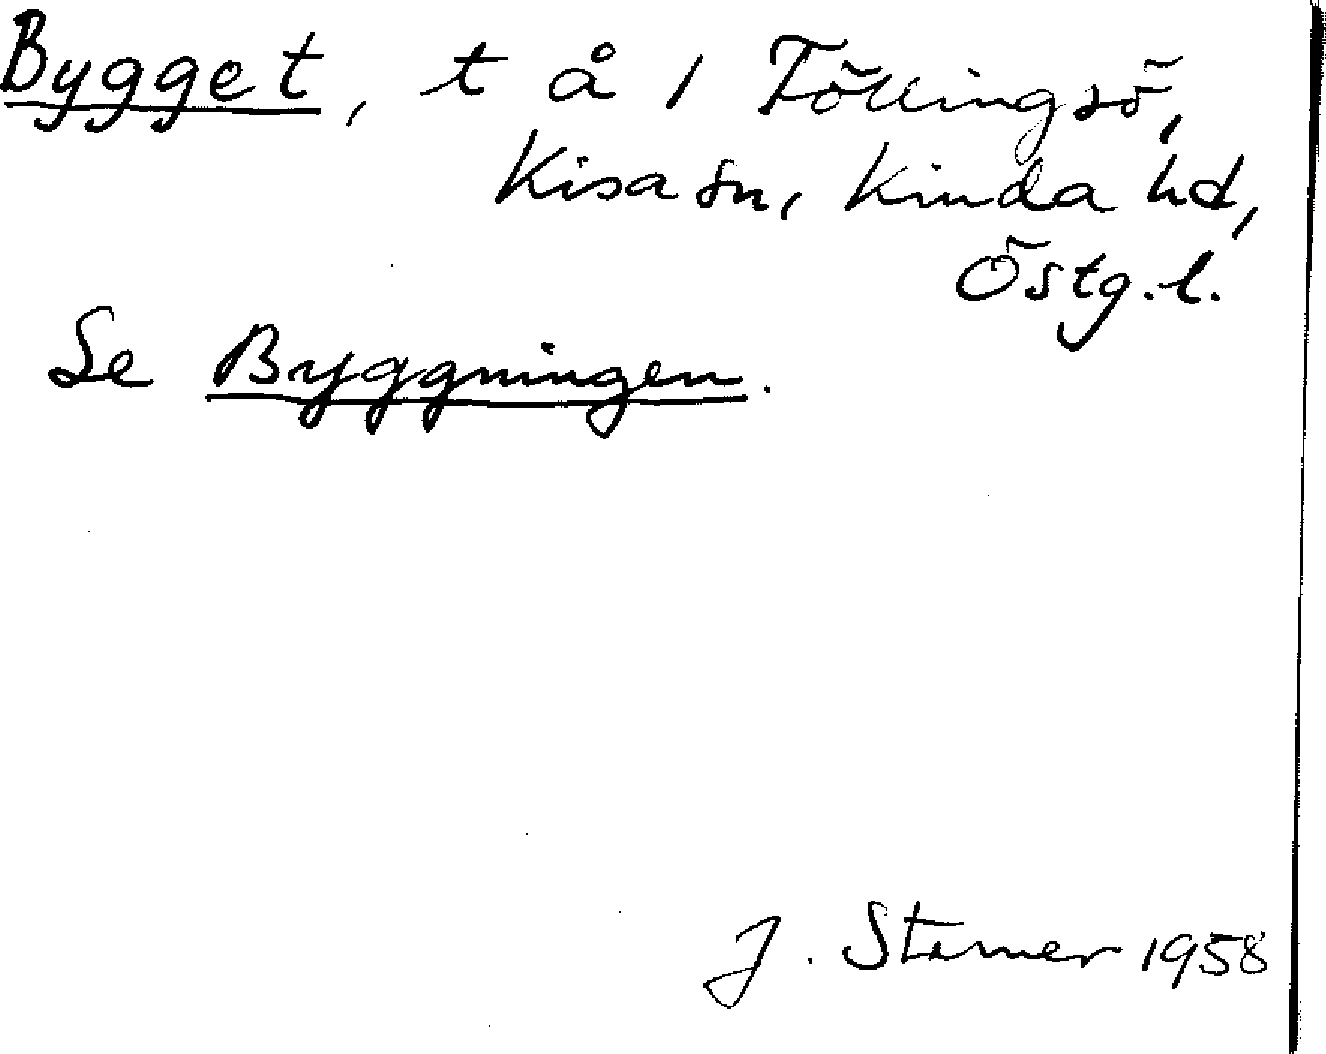 Bygget, t å 1 Föllingsö,
Kisa sn, Kinda hd,
Östg.l.
Se Byggningen.
J. Starner 1958